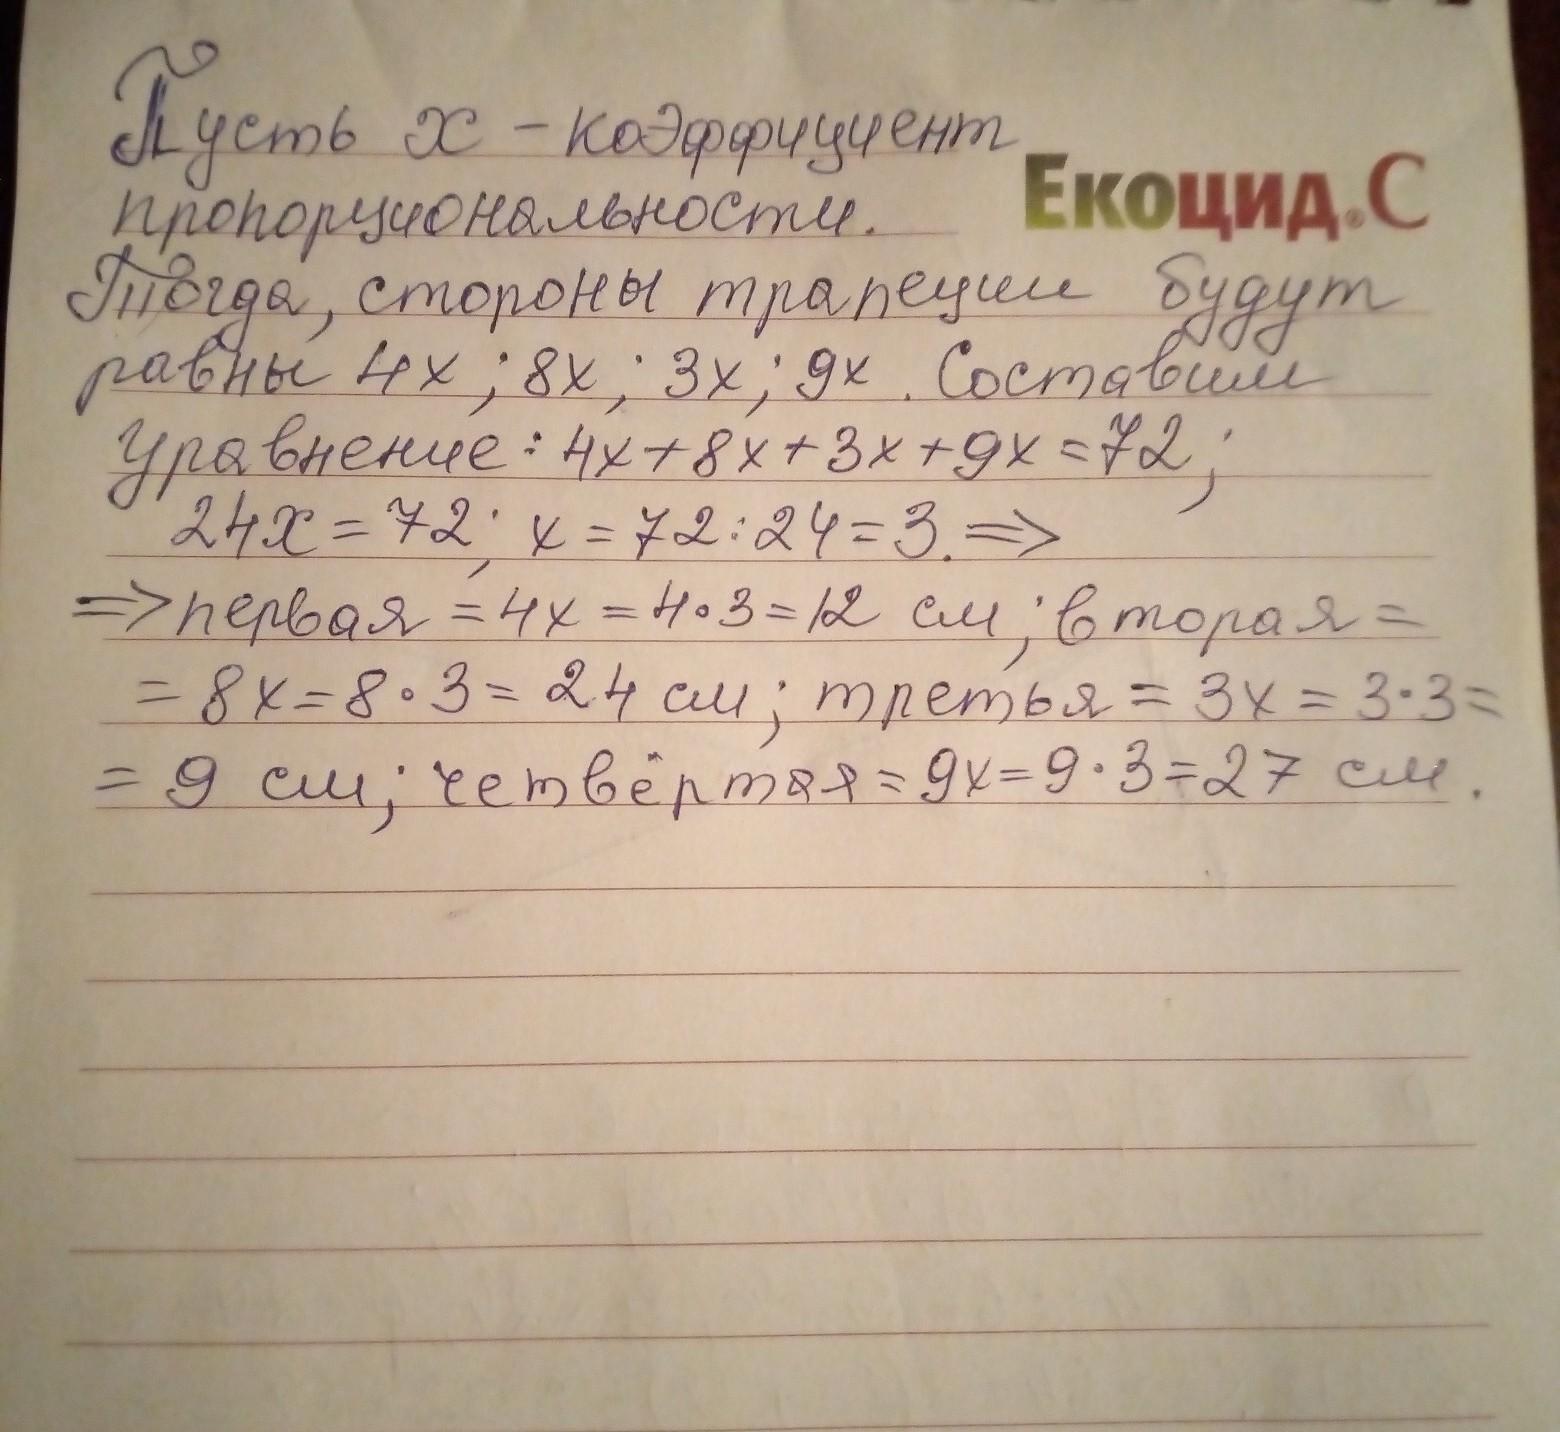 Пусть x – коэффициент
Екоцид.С
пропорциональности.
Тогда, стороны трапеции будут
равны 4x; 8x; 3x; 9x. Составим
уравнение: 4x+8x+3x+9x=72;
24x=72; x=72:24=3. =>
=> первая =4x=4·3=12 см; вторая =
= 8x=8·3=24 см; третья = 3x = 3·3=
= 9 см; четвёртая = 9x=9·3=27 см.